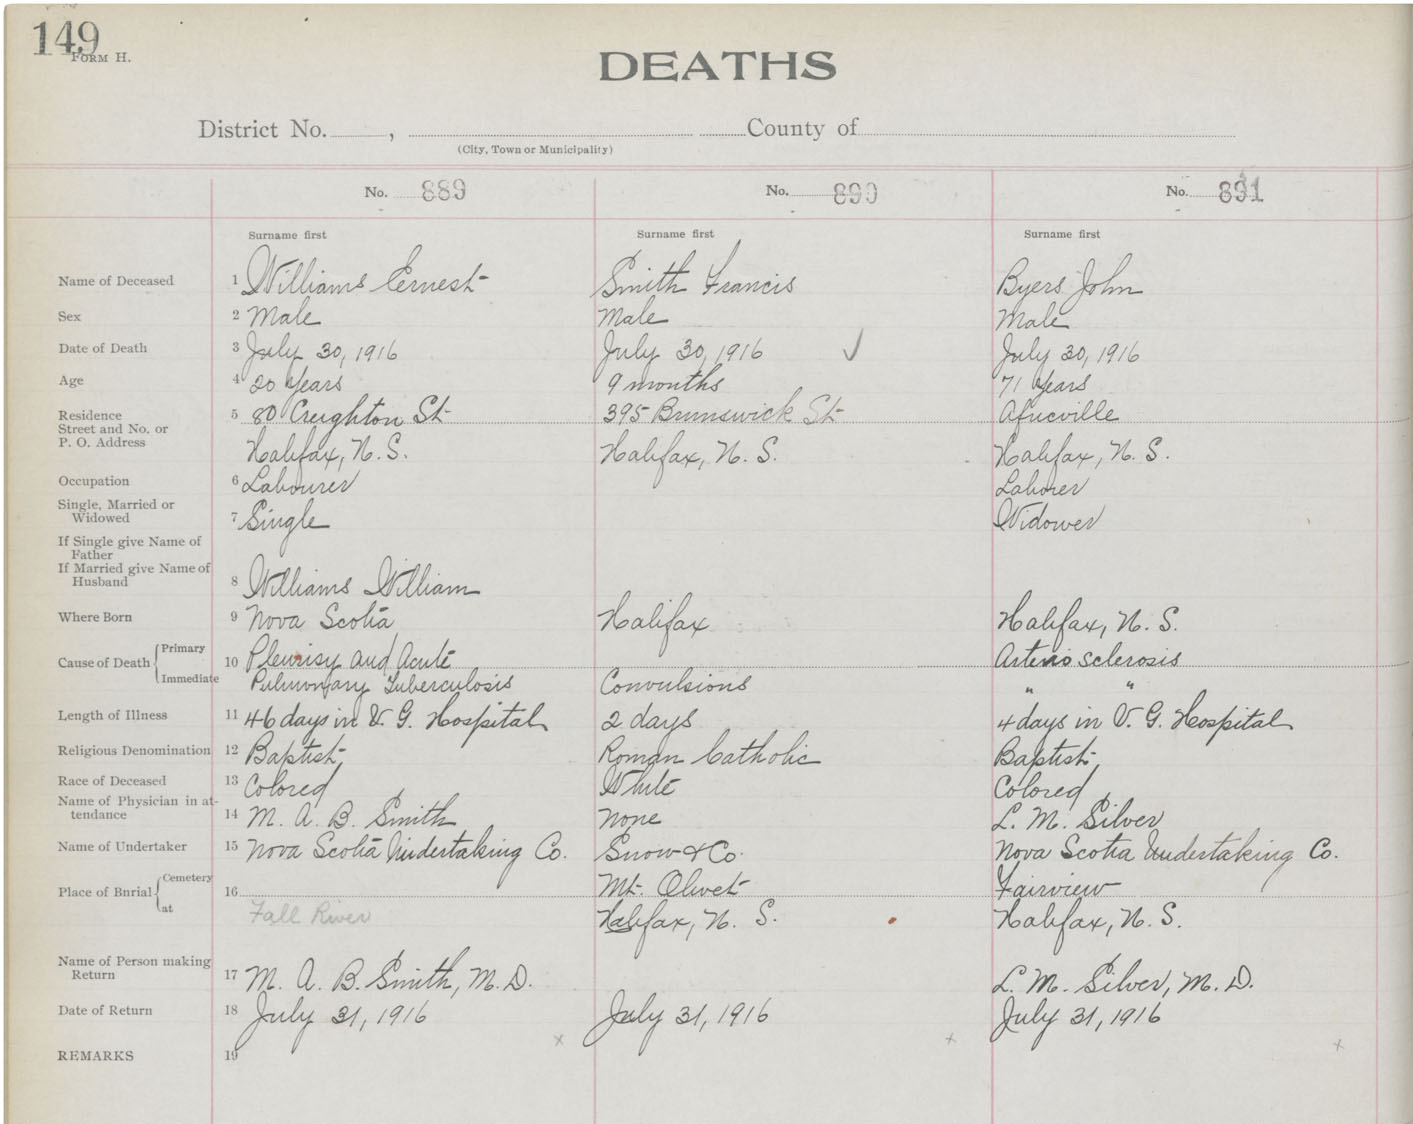 149
FORM H.
DEATHS
District No. , County of
(City, Town or Municipality)
No. 889 No. 890 No. 891
Surname first Surname first Surname first
Name of Deceased 1 Williams Ernest Smith Francis Byers John
Sex 2 Male Male Male
Date of Death 3 July 30, 1916 July 30, 1916 ✓ July 30, 1916
Age 4 20 Years 9 months 71 Years
Residence 5 80 Creighton St 395 Brunswick St Africville
Street and No. or
P. O. Address Halifax, N. S. Halifax, N. S. Halifax, N. S.
Occupation 6 Labourer Laborer
Single, Married or
Widowed 7 Single Widower
If Single give Name of
Father
If Married give Name of
Husband 8 Williams William
Where Born 9 Nova Scotia Halifax Halifax, N. S.
Cause of Death { Primary 10 Pleurisy and Acute Arterio sclerosis
Immediate Pulmonary Tuberculosis Convulsions " "
Length of Illness 11 46 days in V. G. Hospital 2 days 4 days in V. G. Hospital
Religious Denomination 12 Baptist Roman Catholic Baptist
Race of Deceased 13 Colored White Colored
Name of Physician in at-
tendance 14 M. A. B. Smith None L. M. Silver
Name of Undertaker 15 Nova Scotia Undertaking Co. Snow & Co. Nova Scotia Undertaking Co.
Place of Burial { Cemetery 16 Mt. Olivet Fairview
at Fall River Halifax, N. S. Halifax, N. S.
Name of Person making
Return 17 M. A. B. Smith, M. D. L. M. Silver, M. D.
Date of Return 18 July 31, 1916 July 31, 1916 July 31, 1916
x x x
REMARKS 19